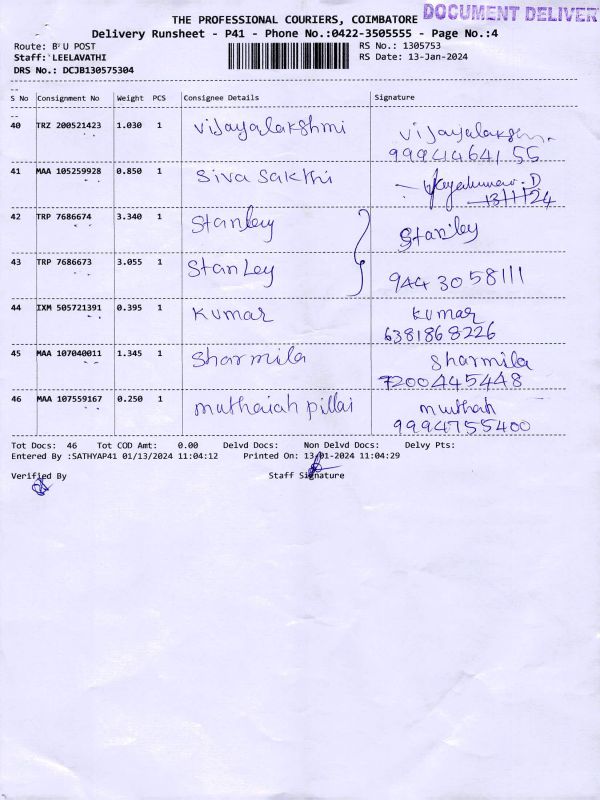 THE PROFESSIONAL COURIERS, COIMBATORE DOCUMENT DELIVER
Delivery Runsheet - P41 - Phone No.:0422-3505555 - Page No.:4
Route: B'U POST RS No.: 1305753
Staff: LEELAVATHI RS Date: 13-Jan-2024
DRS No.: DCJB130575304
S No Consignment No Weight PCS Consignee Details Signature
40 TRZ 200521423 1.030 1 Vijayalakshmi
99944641 55
41 MAA 105259928 0.850 1 Siva Sakthi
13/1/24
42 TRP 7686674 3.340 1 Stanley Stanley
43 TRP 7686673 3.055 1 Stanley 944 30 58111
44 IXM 505721391 0.395 1 Kumar Kumar
6381868226
45 MAA 107040011 1.345 1 Sharmila Sharmila
7200445448
46 MAA 107559167 0.250 1 muthaiah pillai muthah
9994755400
Tot Docs: 46 Tot COD Amt: 0.00 Delvd Docs: Non Delvd Docs: Delvy Pts:
Entered By :SATHYAP41 01/13/2024 11:04:12 Printed On: 13-01-2024 11:04:29
Verified By Staff Signature